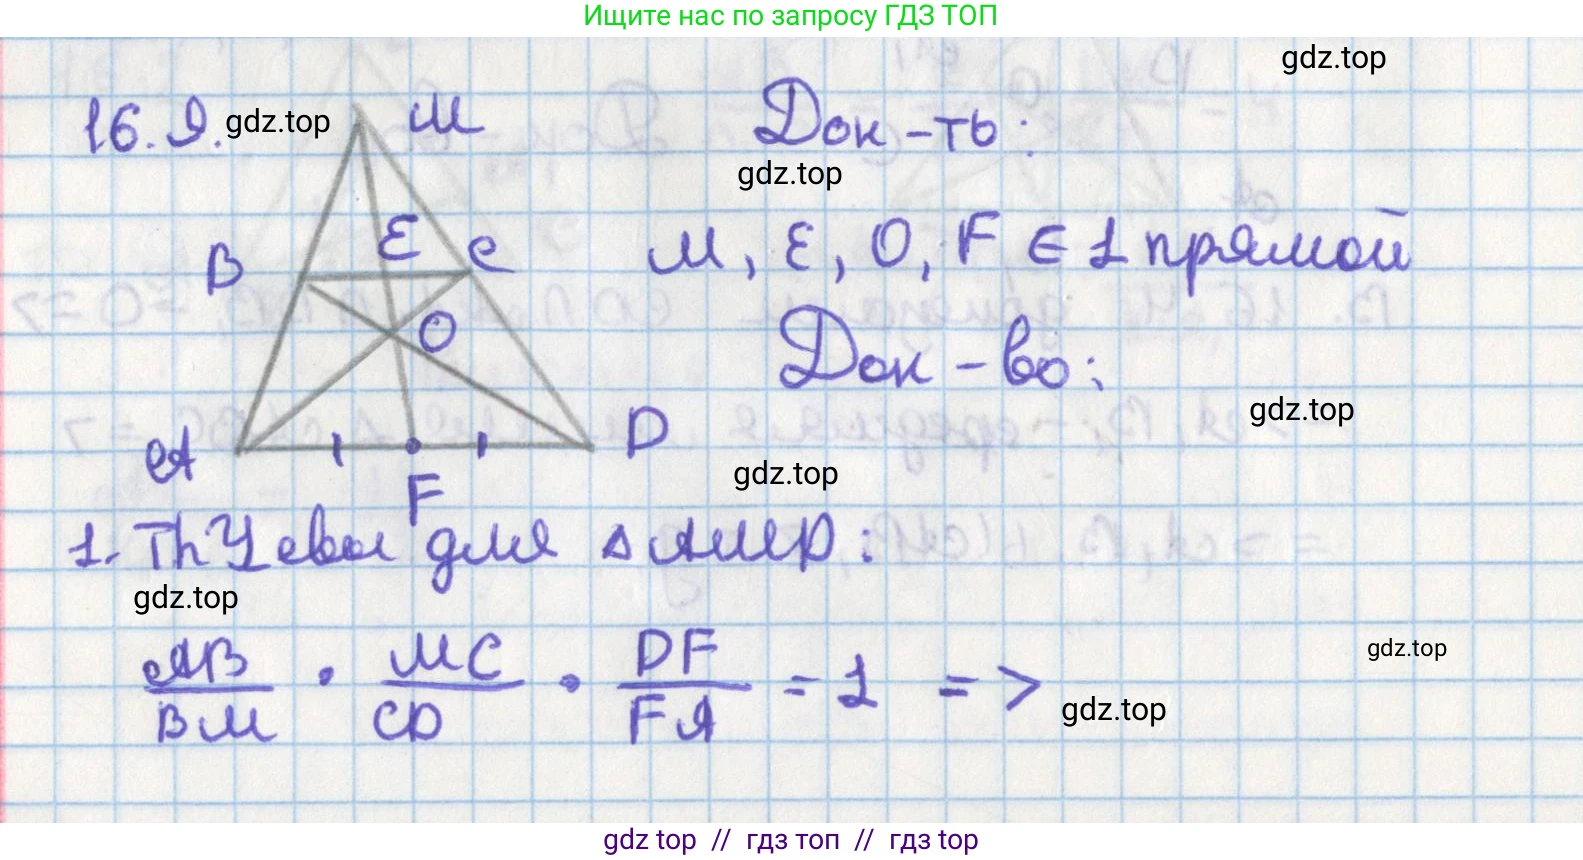 Ищите нас по запросу ГДЗ ТОП
gdz.top
16.9. gdz.top M Док-ть:
gdz.top
B E C M, E, O, F ∈ 1 прямой
O Док-во:
gdz.top
A D
gdz.top
F
1. Th Чевы для △AMD:
gdz.top
AB/BM · MC/CD · DF/FA = 1 =>
gdz.top
gdz.top
gdz top // гдз топ // гдз top